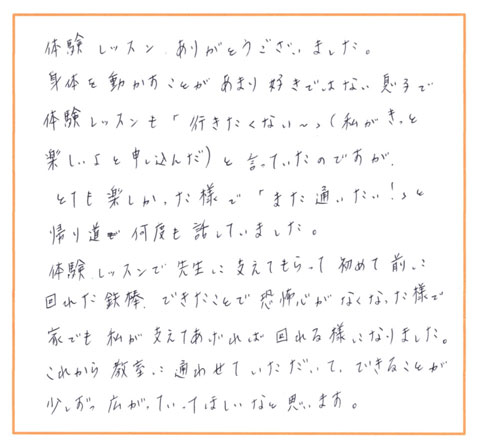 体験レッスン、ありがとうございました。
身体を動かすことがあまり好きではない息子で
体験レッスンも「行きたくない〜」(私がきっと
楽しい」と申し込んだ)と言っていたのですが、
とても楽しかった様で「また通いたい!」と
帰り道で何度も話していました。
体験レッスンで先生に支えてもらって初めて前に
回れた鉄棒、できたことで恐怖心がなくなった様で
家でも私が支えてあげれば回れる様になりました。
これから教室に通わせていただいて、できることが
少しずつ広がっていってほしいなと思います。